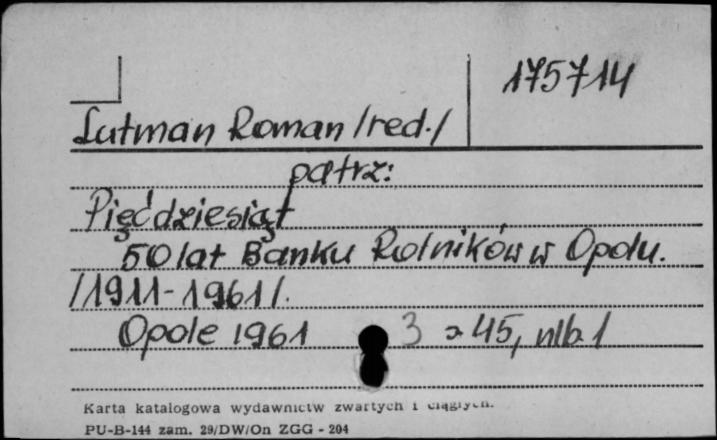 175714
Lutman Roman /red./
patrz:
Pięćdziesiąt
50 lat Banku Rolników w Opolu.
/1911-1961/.
Opole 1961 3 s 45, nlb 1
Karta katalogowa wydawnictw zwartych i ciągłych.
PU-B-144 zam. 29/DW/On ZGG - 204